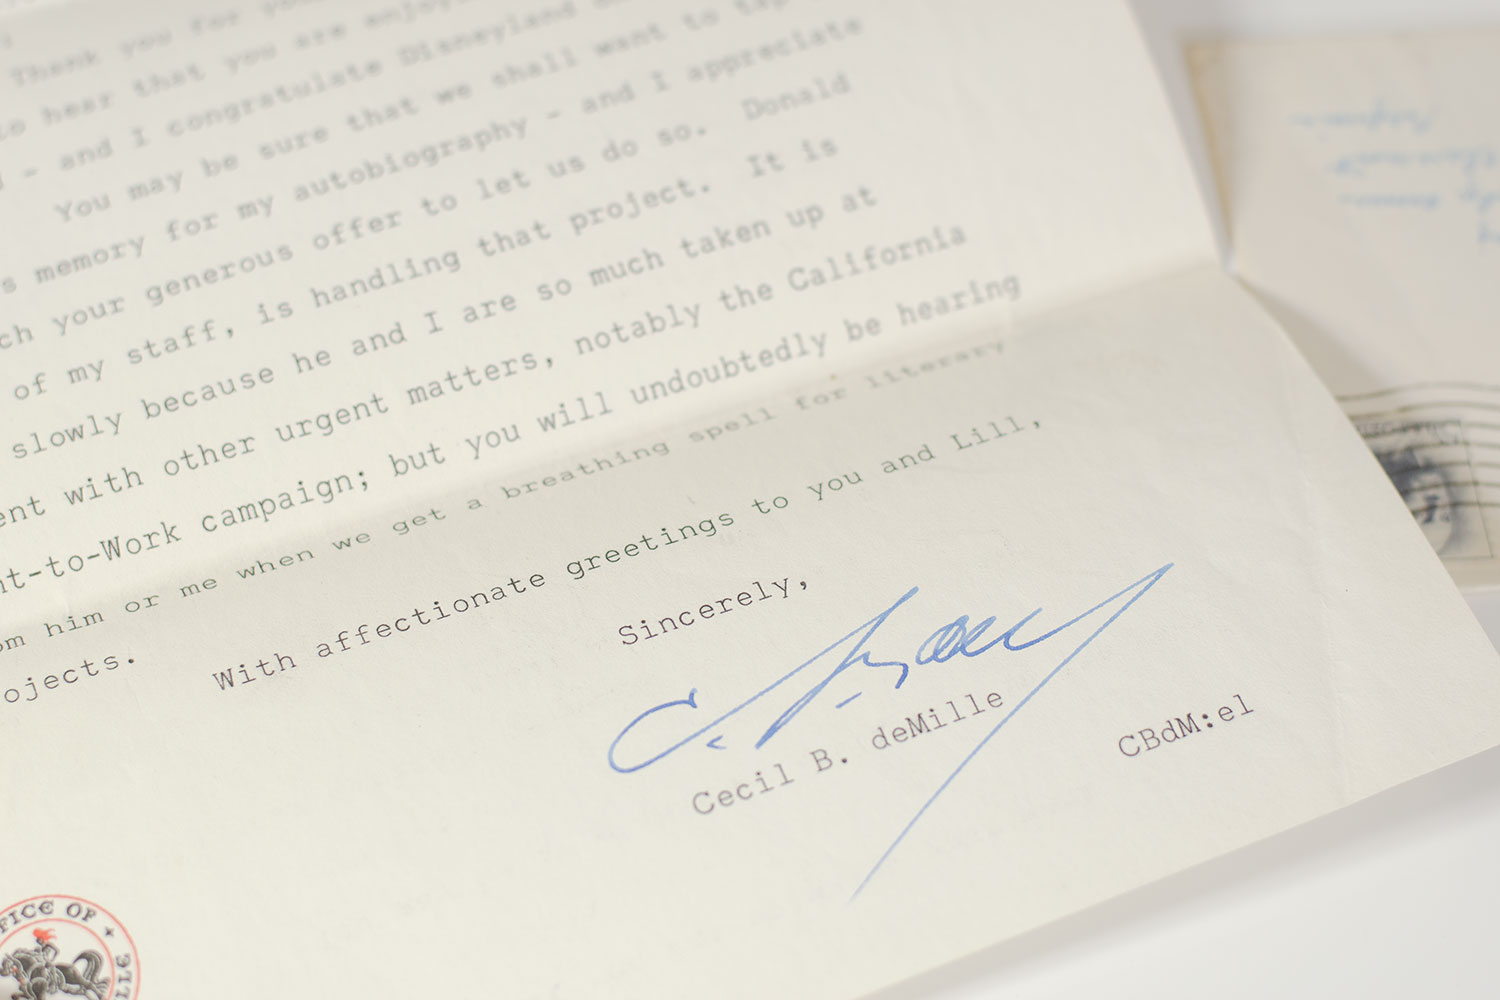 Thank you for you
to hear that you are enjoy
- and I congratulate Disneyland on
You may be sure that we shall want to tap
s memory for my autobiography - and I appreciate
ch your generous offer to let us do so. Donald
of my staff, is handling that project. It is
slowly because he and I are so much taken up at
ent with other urgent matters, notably the California
ht-to-Work campaign; but you will undoubtedly be hearing
om him or me when we get a breathing spell for literary
ojects.
With affectionate greetings to you and Lill,
Sincerely,
Cecil B. deMille
CBdM:el
FICE OF